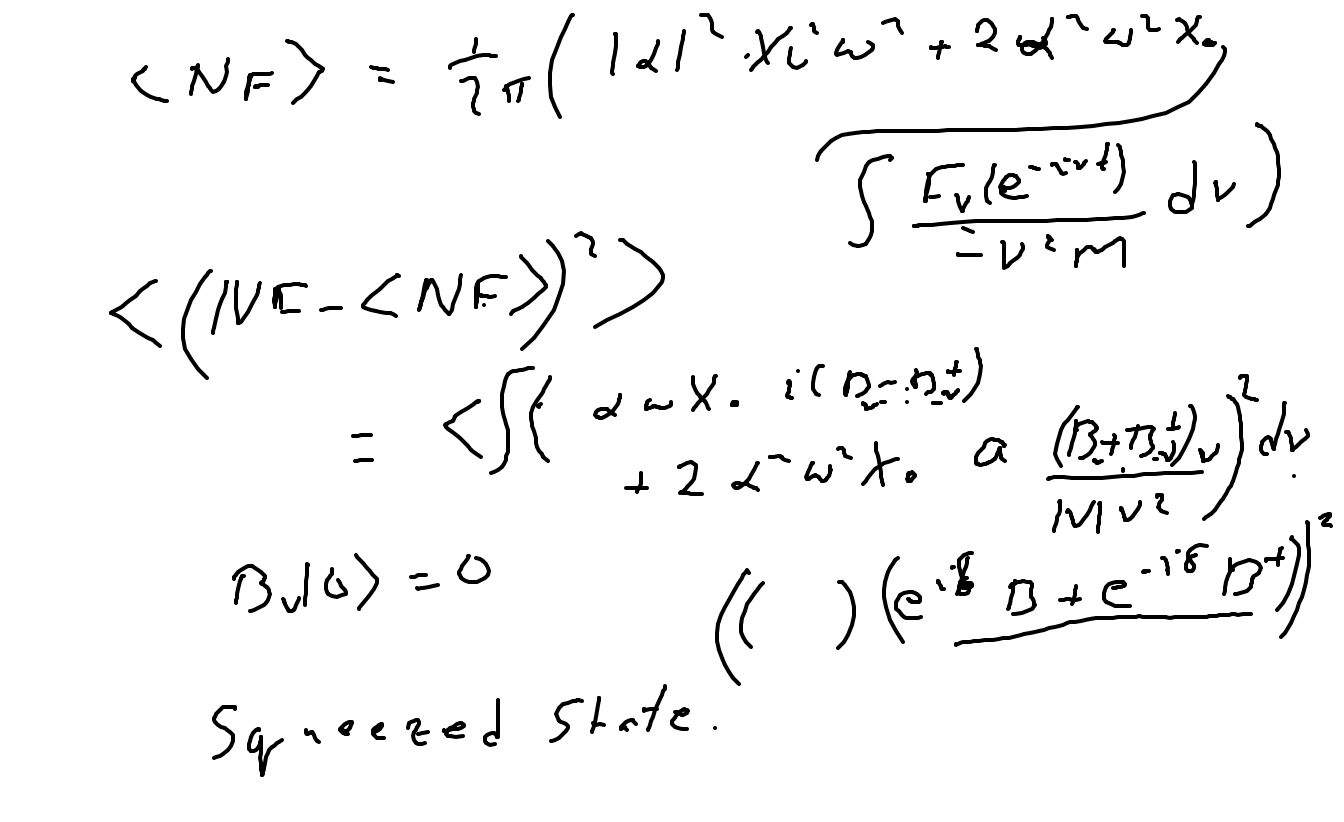 <NF> = 1/2π ( |α|² · X₀² ω² + 2 α² ω² X₀
∫ F_ν (e^{-iνt}) / -ν² m dν )
<(NF - <NF>)²>
= <∫( α ω X₀ i(B_ν - B_ν^†)
+ 2 α² ω² X₀ a (B_ν + B_ν^†)ν / |ν| ν² )² dν
B_ν|0> = 0
(( ) (e^{iδ} B + e^{-iδ} B^†))²
Squeezed State.